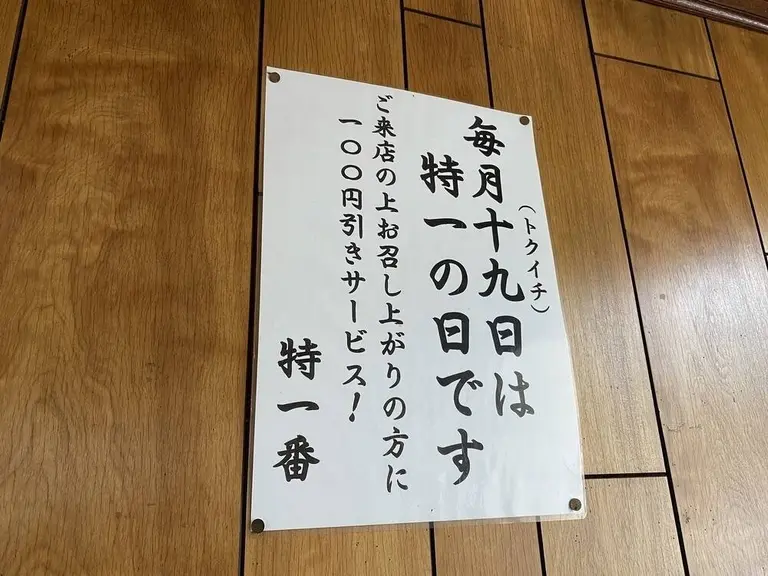 毎月十九日は
(トクイチ)
特一の日です
ご来店の上お召し上がりの方に
一〇〇円引きサービス!
特一番